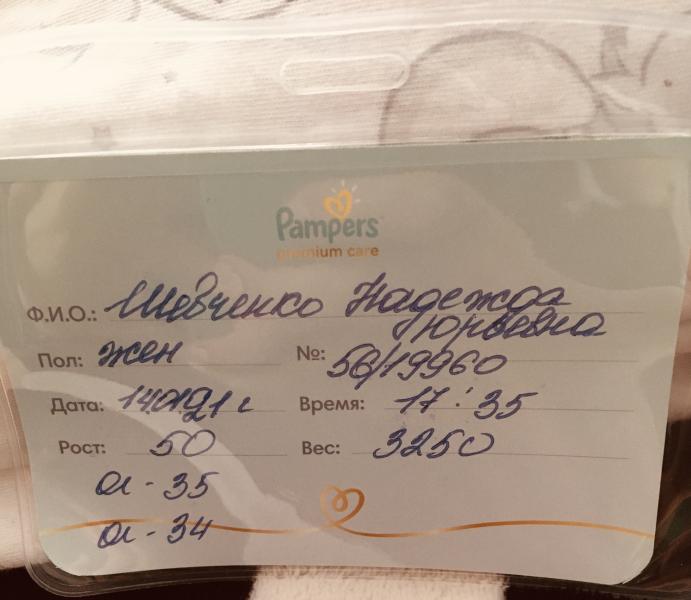 Pampers
premium care
Ф.И.О.: Шевченко Надежда
Юрьевна
Пол: жен №: 56/19960
Дата: 14.01.21 г Время: 17:35
Рост: 50 Вес: 3250
ог - 35
ог - 34